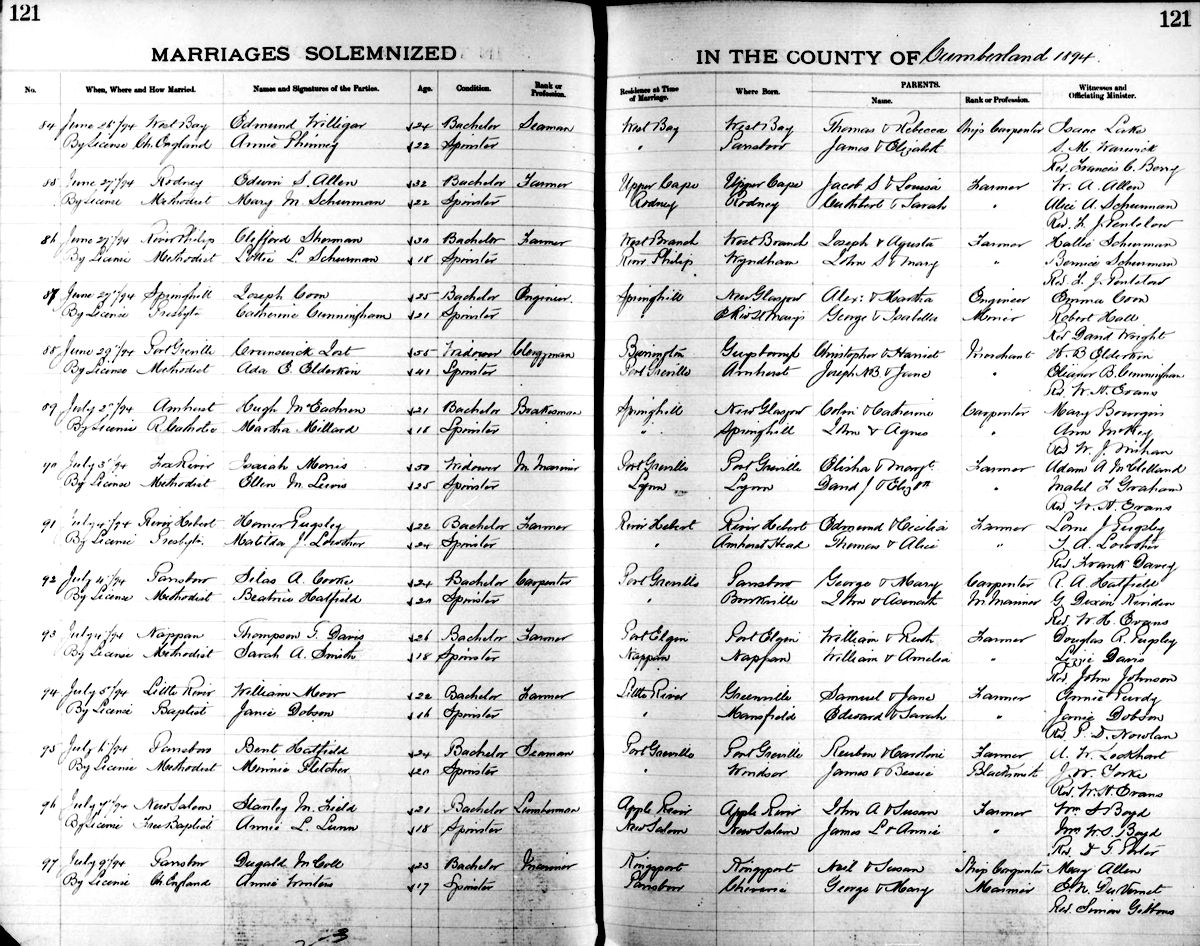 121
121
MARRIAGES SOLEMNIZED
IN THE COUNTY OF Cumberland 1894.
No. When, Where and How Married. Names and Signatures of the Parties. Age. Condition. Rank or Profession. Residence at Time of Marriage. Where Born. PARENTS. Name. Rank or Profession. Witnesses and Officiating Minister.
84 June 26/94 West Bay Edmund Willigar 24 Bachelor Seaman West Bay West Bay Thomas & Rebecca Ship Carpenter Isaac Lake
By License Ch. England Annie Phinney 22 Spinster " James & Elizabeth S. M. Warwick
Rev. Francis C. Berry
85 June 27/94 Rodney Edwin S. Allen 32 Bachelor Farmer Upper Cape Upper Cape Jacob S & Louisa Farmer W. A. Allen
By License Methodist Mary M. Schurman 22 Spinster Rodney Rodney Cuthbert & Sarah " Alice A. Schurman
86 June 27/94 River Philip Clifford Sherman Bachelor Farmer West Branch West Branch Joseph & Agusta Farmer Hallie Schurman
By License Methodist Lottie L. Schurman 18 Spinster River Philip Wyndham John S & Mary " Bernice Schurman
87 June 27/94 Springhill Joseph Coon 25 Bachelor Engineer Springhill New Glasgow Alex. & Martha Engineer Emma Coon
By License Presbytn. Catherine Cunningham 21 Spinster " George & Isabella Minier Robert Hall
Rev David Wright
88 June 29/94 Port Greville Crunswick Jost 55 Widower Clergyman Guysboro Christopher & Harriet Merchant H. B Elderkin
By License Methodist Ada E. Elderkin 41 Spinster Port Greville Amherst Joseph NB & Jane " Eleanor B. Cunningham
Rev. W. H. Evans
89 July 2/94 Amherst Hugh McEachren 21 Bachelor Brakesman Springhill New Glasgow Colin & Catherine Carpenter Mary Bourgois
By License R. Catholic Martha Millard 18 Spinster " Springhill John & Agnes "
90 July 3/94 Fox River Isaiah Morris 50 Widower M. Mariner Port Greville Port Greville Elisha & Margt. Farmer Adam A McClelland
By License Methodist Ellen M. Lewis 25 Spinster Lynn Lynn David J & Elizth " Mabel F Graham
Rev. W. H. Evans
91 July 4/94 River Hebert Homer Pugsley 22 Bachelor Farmer River Hebert River Hebert Edmund & Cicilia Farmer Lorne J. Pugsley
By License Presbytn. Matilda J. Lowther 24 Spinster " Amherst Head Thomas & Alice " T. A. Lowther
Rev. Frank Davey
92 July 4/94 Parrsboro Silas A. Cooke 24 Bachelor Carpenter Port Greville Parrsboro George & Mary Carpenter R. A. Hatfield
By License Methodist Beatrice Hatfield Spinster " John & Asenath M. Mariner G. Dixon
Rev. W. H. Evans
93 July 4/94 Nappan Thompson T. Davis 26 Bachelor Farmer Port Elgin Port Elgin William & Ruth Farmer Douglas R. Pugsley
By License Methodist Sarah A. Smith 18 Spinster Nappan Nappan William & Amelia " Lizzie Davis
Rev. John Johnson
94 July 5/94 Little River William Moor 22 Bachelor Farmer Little River Greenville Samuel & Jane Farmer Annie Purdy
By License Baptist Janie Dobson 16 Spinster " Mansfield Edward & Sarah " Janie Dobson
Rev. P. D. Nowlan
95 July 6/94 Parrsboro Bent Hatfield 24 Bachelor Seaman Port Greville Port Greville Reuben & Caroline Farmer A. W. Lockhart
By License Methodist Minnie Fletcher Spinster " Windsor James & Bessie Blacksmith J. W. Yorke
Rev. W. H. Evans
96 July 7/94 New Salem Stanley M. Field 21 Bachelor Lumberman Apple River Apple River John A & Susan Farmer Wm S Boyd
By License Free Baptist Annie L. Lunn 18 Spinster New Salem New Salem James L & Annie " Mrs W. S. Boyd
Rev. D. T. Porter
97 July 9/94 Parrsboro Dugald McColl 23 Bachelor Mariner Kingsport Kingsport Neil & Susan Ship Carpenter Mary Allen
By License Ch England Annie Winters 17 Spinster Parrsboro Cheverie George & Mary Mariner E. N. DuVernet
Rev. Simon Gibbons